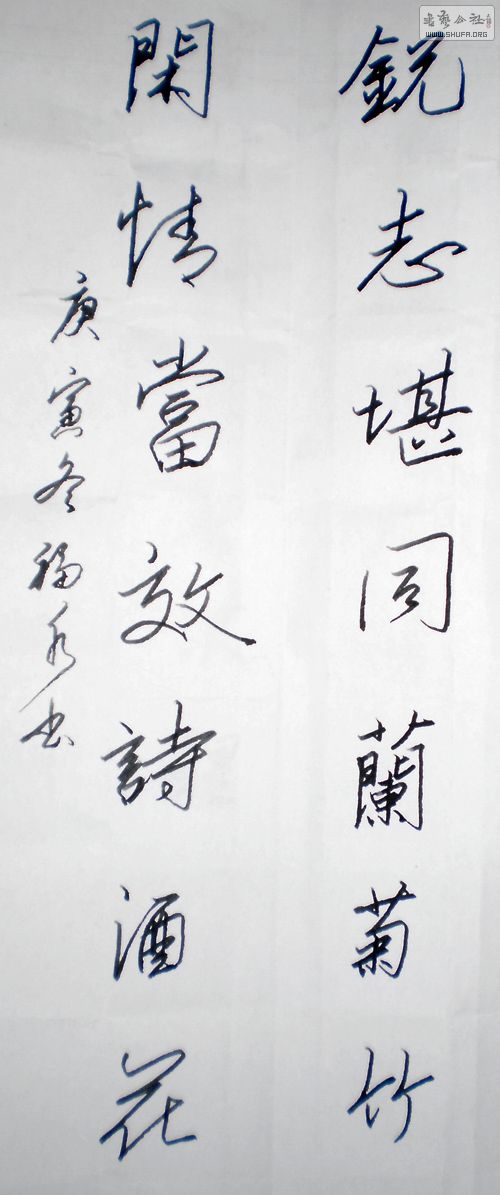 銳志堪同蘭菊竹
閑情當效詩酒花
庚寅冬福永书
書藝公社
WWW.SHUFA.ORG